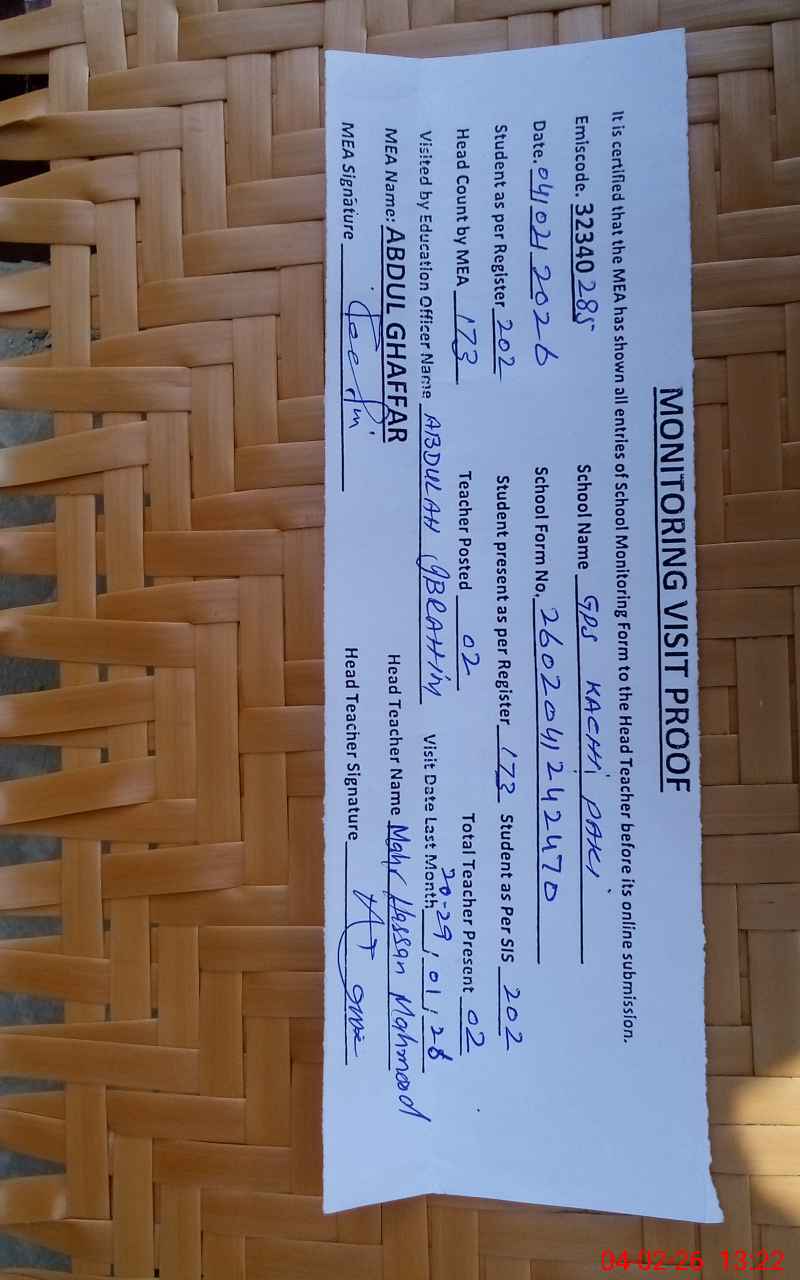 MONITORING VISIT PROOF
It is certified that the MEA has shown all entries of School Monitoring Form to the Head Teacher before its online submission.
Emiscode. 32340285 School Name GPS KACHHI PAKI
Date. 04/02/2026 School Form No. 260204242470
Student as per Register 202 Student present as per Register 173 Student as Per SIS 202
Head Count by MEA 173 Teacher Posted 02 Total Teacher Present 02
Visited by Education Officer Name ABDULAH IBRAHIM Visit Date Last Month 20-29, 01, 26
MEA Name: ABDUL GHAFFAR Head Teacher Name Mahr Hassan Mahmood
MEA Signature Head Teacher Signature
04-02-26 13:22